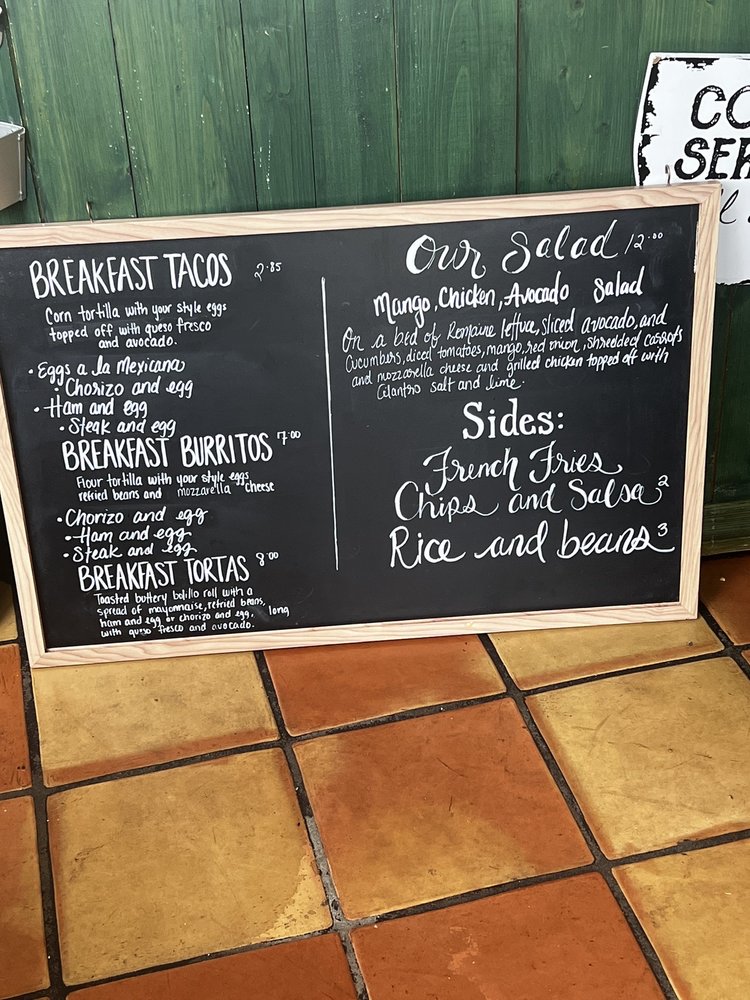 BREAKFAST TACOS 2.85
Corn tortilla with your style eggs
topped off with queso fresco
and avocado.
• Eggs a la Mexicana
Chorizo and egg
• Ham and egg
• Steak and egg
BREAKFAST BURRITOS 7.00
Flour tortilla with your style eggs,
refried beans and mozzarella cheese
• Chorizo and egg
• Ham and egg
• Steak and egg
BREAKFAST TORTAS 8.00
Toasted buttery bolillo roll with a
spread of mayonnaise, refried beans,
ham and egg or chorizo and egg, long
with queso fresco and avocado.
Our Salad 12.00
Mango, Chicken, Avocado Salad
On a bed of Romaine lettus, sliced avocado, and
Cucumbers, diced tomatoes, mango, red onion, shredded carrots
and mozzarella cheese and grilled chicken topped off with
Cilantro salt and lime.
Sides:
French Fries
Chips and Salsa 2
Rice and beans 3
CO
SER